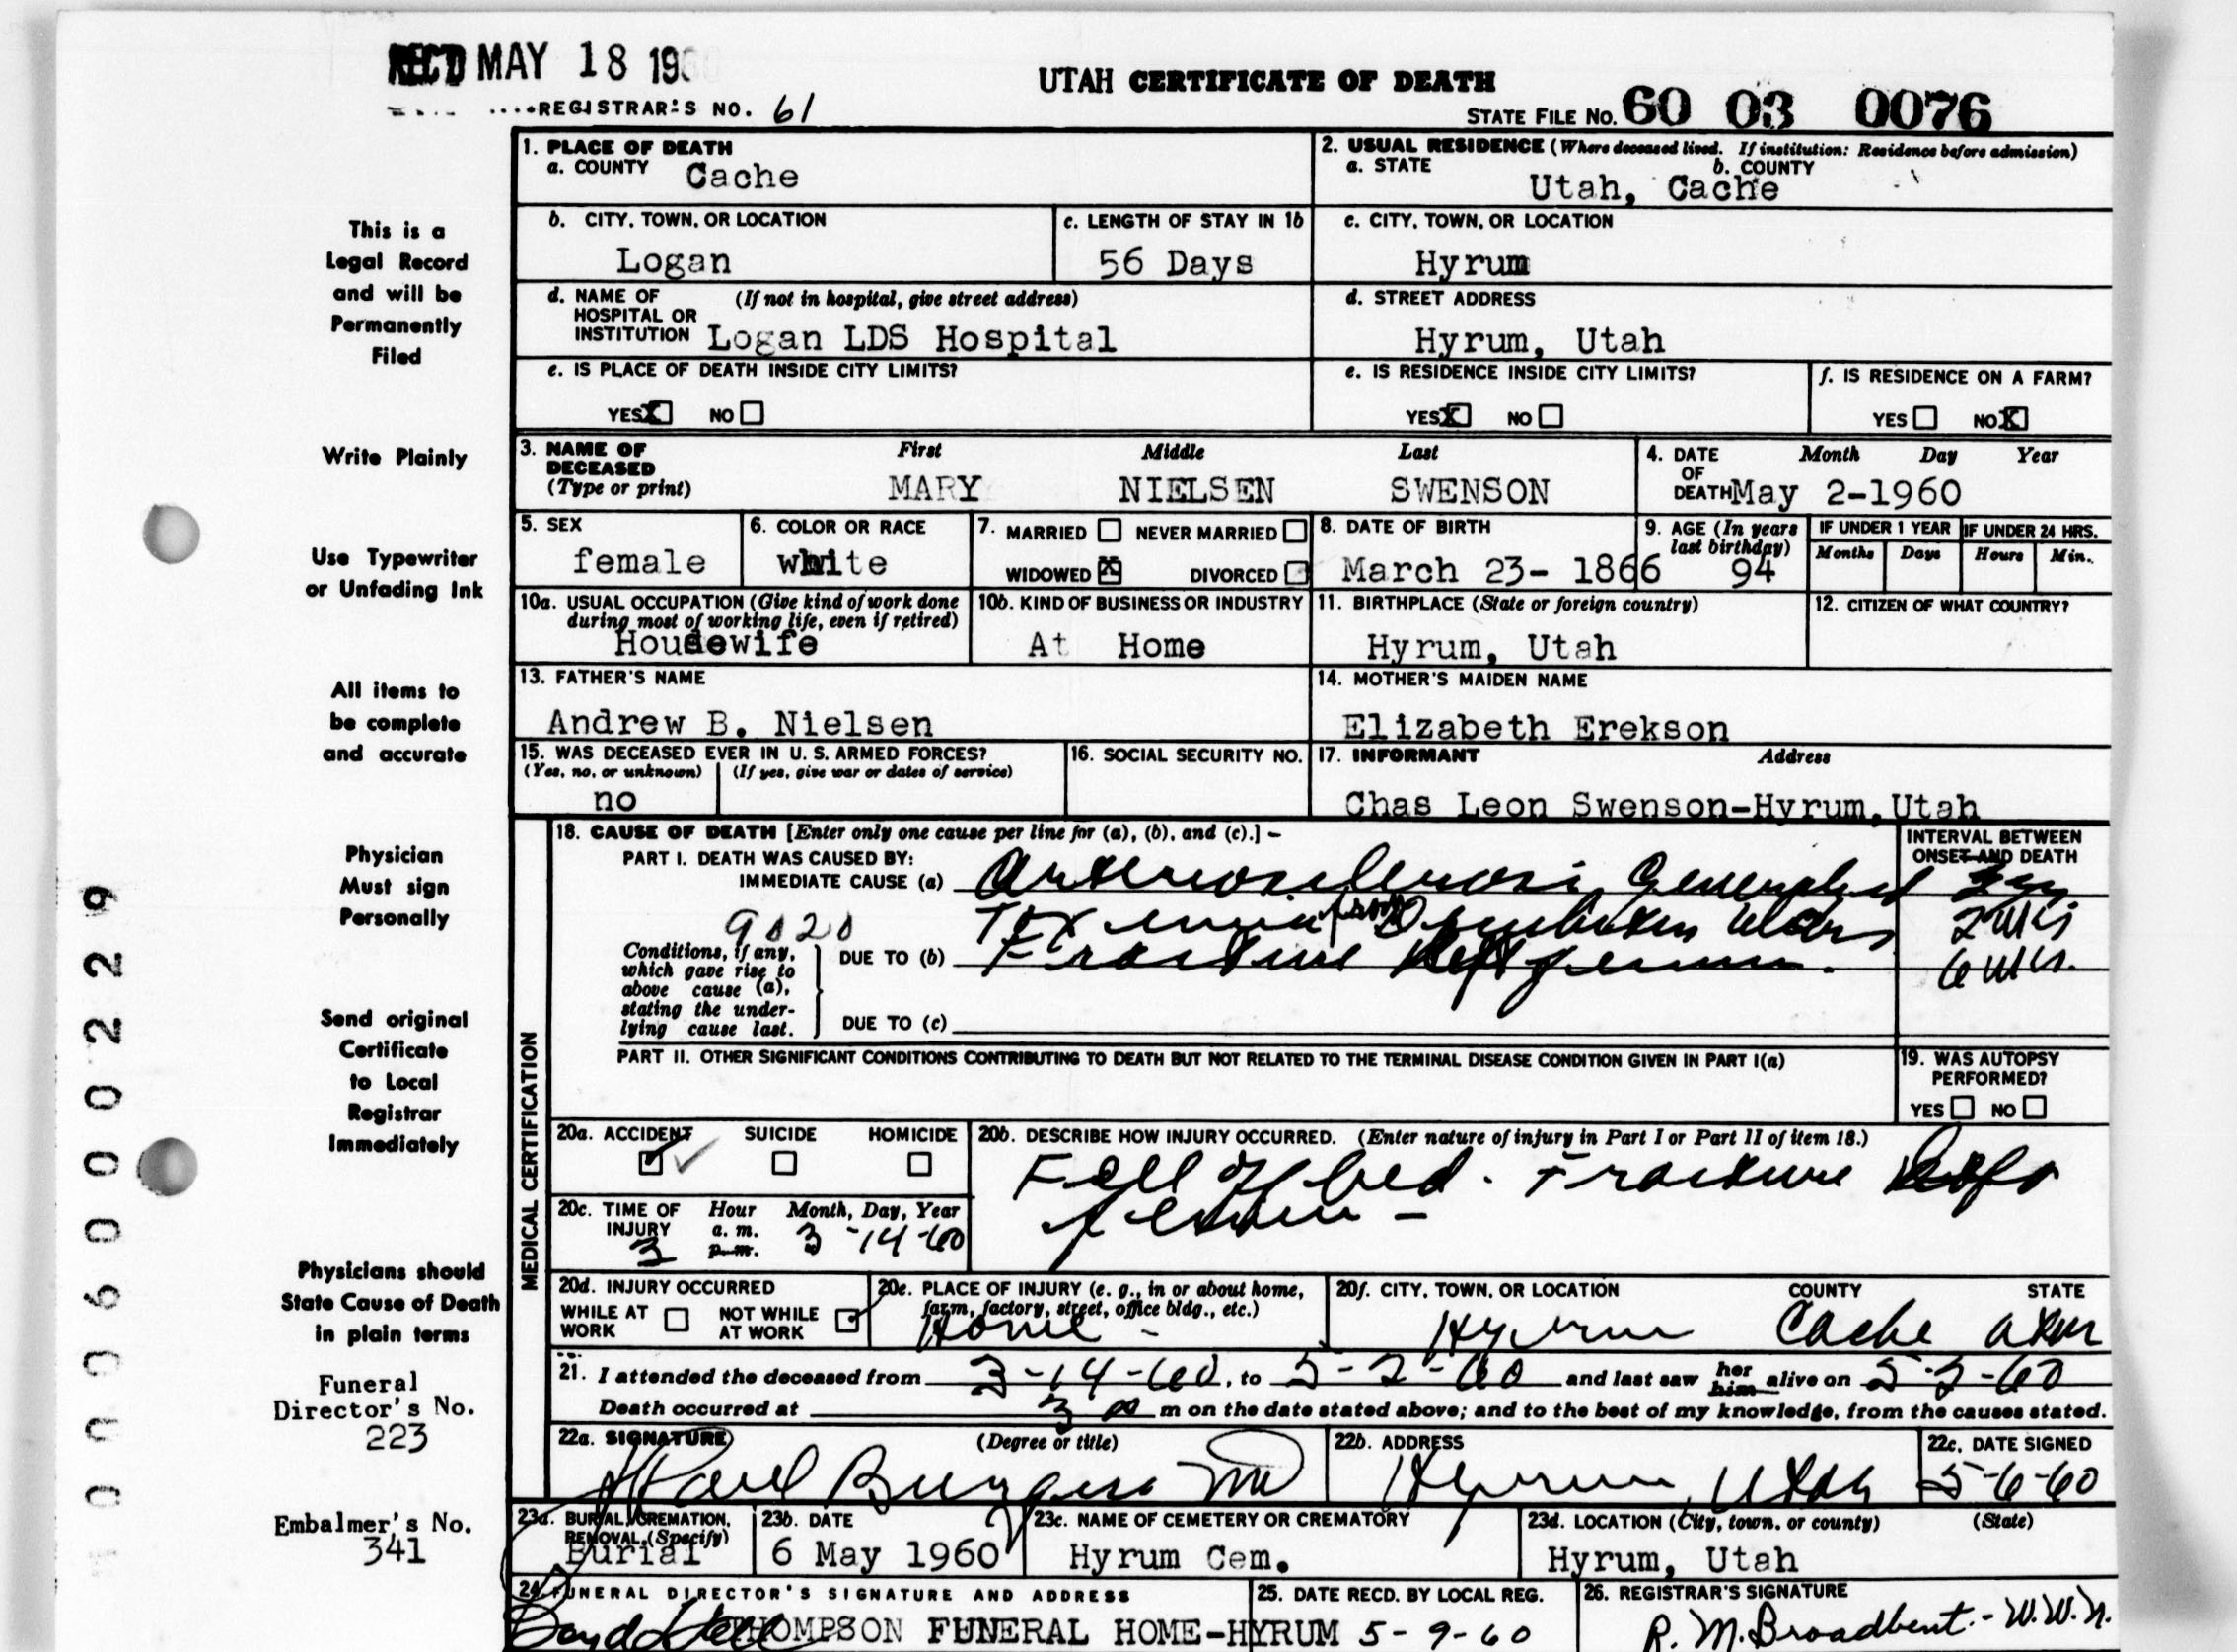 REC'D MAY 18 19
UTAH CERTIFICATE OF DEATH
REGISTRAR'S NO. 61
STATE FILE NO. 60 03 0076
This is a
Legal Record
and will be
Permanently
Filed
Write Plainly
Use Typewriter
or Unfading Ink
All items to
be complete
and accurate
Physician
Must sign
Personally
Send original
Certificate
to Local
Registrar
Immediately
Physicians should
State Cause of Death
in plain terms
Funeral
Director's No.
223
Embalmer's No.
341
0006000229
1. PLACE OF DEATH
a. COUNTY Cache
2. USUAL RESIDENCE (Where deceased lived. If institution: Residence before admission)
a. STATE b. COUNTY
Utah, Cache
b. CITY, TOWN, OR LOCATION
Logan
c. LENGTH OF STAY IN 1b
56 Days
c. CITY, TOWN, OR LOCATION
Hyrum
d. NAME OF (If not in hospital, give street address)
HOSPITAL OR
INSTITUTION Logan LDS Hospital
d. STREET ADDRESS
Hyrum, Utah
e. IS PLACE OF DEATH INSIDE CITY LIMITS?
YES X NO
e. IS RESIDENCE INSIDE CITY LIMITS?
YES X NO
f. IS RESIDENCE ON A FARM?
YES NO X
3. NAME OF First Middle Last
DECEASED
(Type or print) MARY NIELSEN SWENSON
4. DATE Month Day Year
OF
DEATH May 2-1960
5. SEX
female
6. COLOR OR RACE
white
7. MARRIED NEVER MARRIED
WIDOWED X DIVORCED
8. DATE OF BIRTH
March 23- 1866
9. AGE (In years
last birthday)
94
IF UNDER 1 YEAR IF UNDER 24 HRS.
Months Days Hours Min.
10a. USUAL OCCUPATION (Give kind of work done
during most of working life, even if retired)
Housewife
10b. KIND OF BUSINESS OR INDUSTRY
At Home
11. BIRTHPLACE (State or foreign country)
Hyrum, Utah
12. CITIZEN OF WHAT COUNTRY?
13. FATHER'S NAME
Andrew B. Nielsen
14. MOTHER'S MAIDEN NAME
Elizabeth Erekson
15. WAS DECEASED EVER IN U. S. ARMED FORCES?
(Yes, no, or unknown) (If yes, give war or dates of service)
no
16. SOCIAL SECURITY NO.
17. INFORMANT Address
Chas Leon Swenson-Hyrum, Utah
MEDICAL CERTIFICATION
18. CAUSE OF DEATH [Enter only one cause per line for (a), (b), and (c).]
INTERVAL BETWEEN
ONSET AND DEATH
PART I. DEATH WAS CAUSED BY:
IMMEDIATE CAUSE (a) Arteriosclerosis Generalized
9020
Toxemia from Decubitus Ulcers 2 wks
Conditions, if any,
which gave rise to
above cause (a),
stating the under-
lying cause last.
DUE TO (b) Fracture left femur. 6 wks.
DUE TO (c)
PART II. OTHER SIGNIFICANT CONDITIONS CONTRIBUTING TO DEATH BUT NOT RELATED TO THE TERMINAL DISEASE CONDITION GIVEN IN PART I(a)
19. WAS AUTOPSY
PERFORMED?
YES NO
20a. ACCIDENT SUICIDE HOMICIDE
20b. DESCRIBE HOW INJURY OCCURRED. (Enter nature of injury in Part I or Part II of item 18.)
Fell of bed. Fracture left
femur -
20c. TIME OF Hour Month, Day, Year
INJURY a. m.
3 p. m. 3-14-60
20d. INJURY OCCURRED
WHILE AT WORK NOT WHILE AT WORK
20e. PLACE OF INJURY (e. g., in or about home,
farm, factory, street, office bldg., etc.)
Home -
20f. CITY, TOWN, OR LOCATION COUNTY STATE
Hyrum Cache Utah
21. I attended the deceased from 3-14-60, to 5-2-60 and last saw her him alive on 5-2-60
Death occurred at 3 m on the date stated above; and to the best of my knowledge, from the causes stated.
22a. SIGNATURE (Degree or title)
Burgess MD
22b. ADDRESS
Hyrum, Utah
22c. DATE SIGNED
5-6-60
23a. BURIAL, CREMATION,
REMOVAL, (Specify)
Burial
23b. DATE
6 May 1960
23c. NAME OF CEMETERY OR CREMATORY
Hyrum Cem.
23d. LOCATION (City, town, or county) (State)
Hyrum, Utah
24. FUNERAL DIRECTOR'S SIGNATURE AND ADDRESS
Boyd THOMPSON FUNERAL HOME-HYRUM
25. DATE RECD. BY LOCAL REG.
5-9-60
26. REGISTRAR'S SIGNATURE
R. M. Broadbent.- W.W.N.